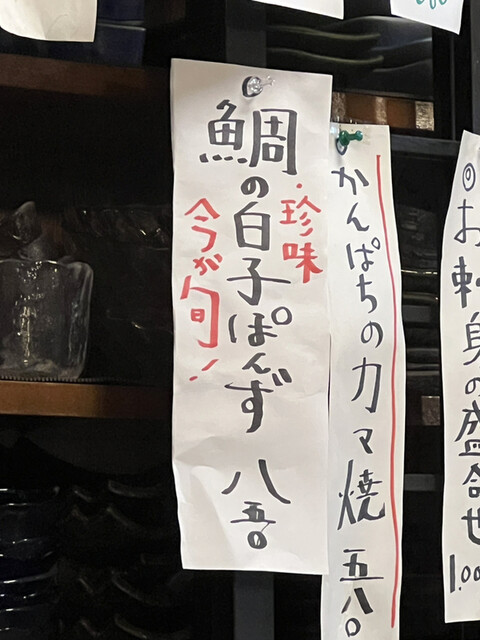 ◎お刺身の盛合せ
1.00
かんぱちのカマ焼 五八〇
・珍味
鯛の白子ぽんず 八五〇
今が旬!